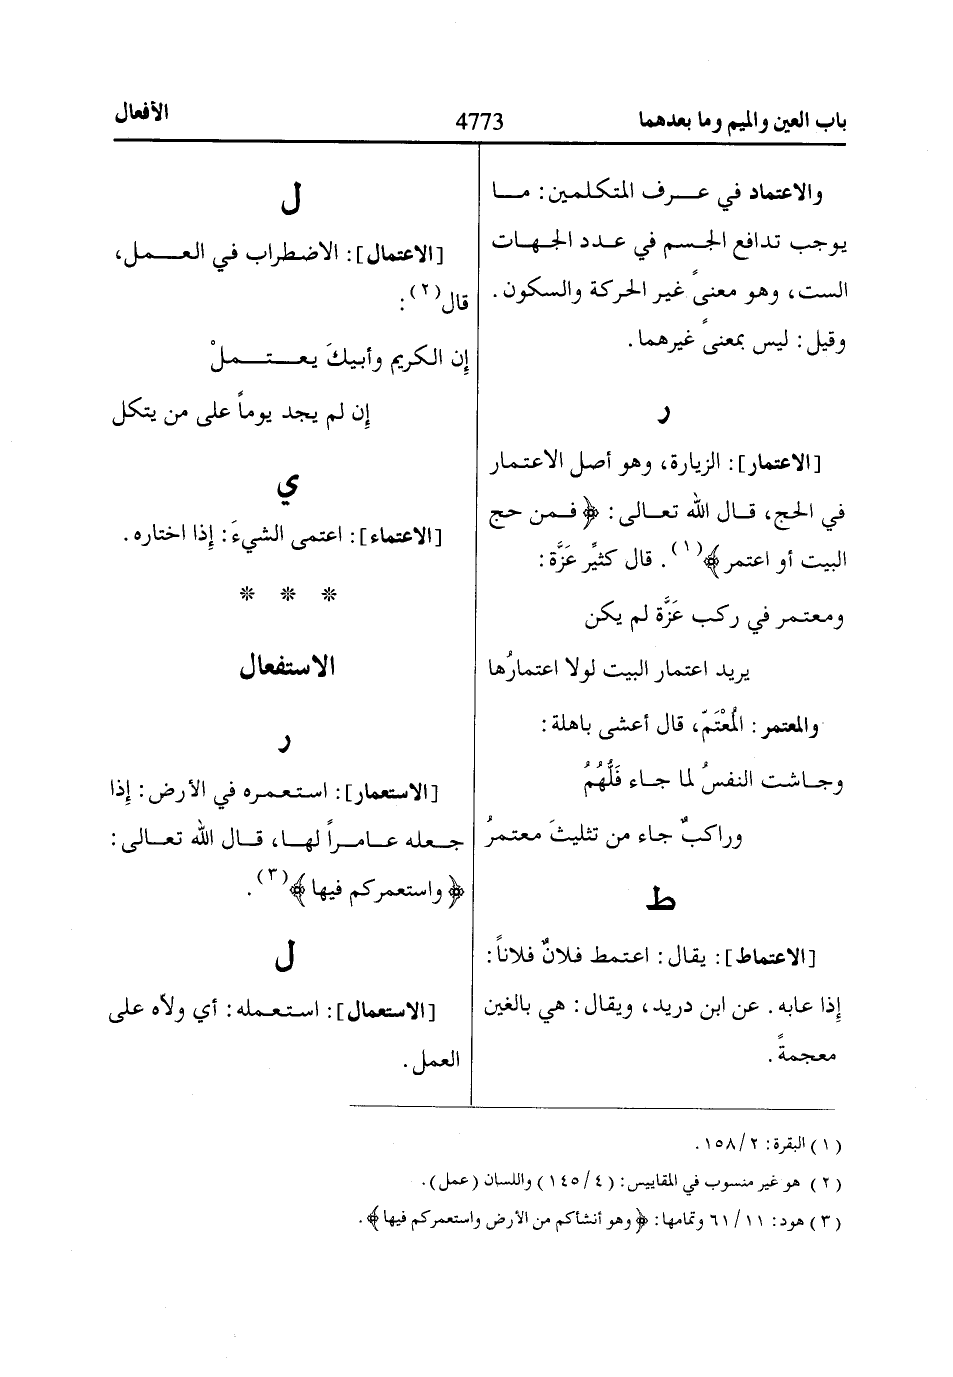 باب العين والميم وما بعدهما
4773
الأفعال
والاعتماد في عرف المتكلمين: ما
يوجب تدافع الجسم في عدد الجهات
الست، وهو معنىً غير الحركة والسكون.
وقيل: ليس بمعنىً غيرهما.
ر
[الاعتمار]: الزيارة، وهو أصل الاعتمار
في الحج، قال الله تعالى: ﴿فمن حج
البيت أو اعتمر﴾(١). قال كثيِّر عَزَّة:
ومعتمر في ركب عَزَّة لم يكن
يريد اعتمار البيت لولا اعتمارُها
والمعتمر: المُعْتَمّ، قال أعشى باهلة:
وجاشت النفسُ لما جاء فَلُّهُمُ
وراكبٌ جاء من تثليثَ معتمرُ
ط
[الاعتماط]: يقال: اعتمط فلانٌ فلاناً:
إذا عابه. عن ابن دريد، ويقال: هي بالغين
معجمةً.
ل
[الاعتمال]: الاضطراب في العمل،
قال(٢):
إن الكريم وأبيكَ يعتملْ
إن لم يجد يوماً على من يتكل
ي
[الاعتماء]: اعتمى الشيءَ: إذا اختاره.
* * *
الاستفعال
ر
[الاستعمار]: استعمره في الأرض: إذا
جعله عامراً لها، قال الله تعالى:
﴿واستعمركم فيها﴾(٣).
ل
[الاستعمال]: استعمله: أي ولاه على
العمل.
(١) البقرة: ٢/١٥٨.
(٢) هو غير منسوب في المقاييس: (٤/١٤٥) واللسان (عمل).
(٣) هود: ١١/٦١ وتمامها: ﴿وهو أنشأكم من الأرض واستعمركم فيها﴾.